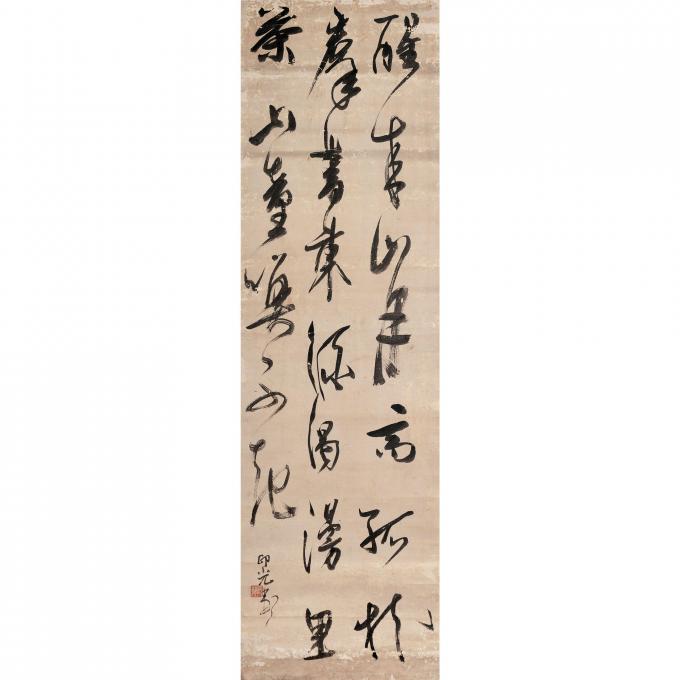 醒來山月高孤枕
羣書裏酒渴漫思
茶山童喚不起
印光書